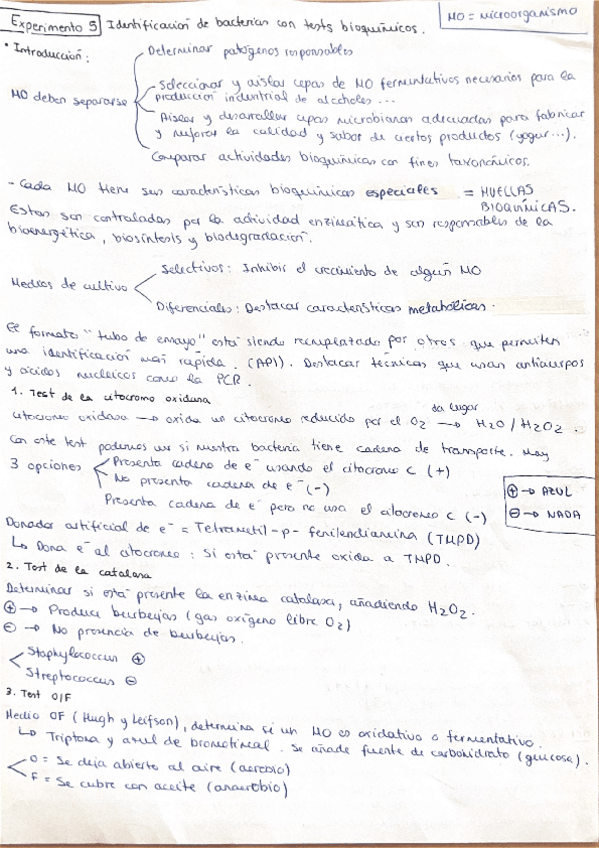 Experimento 5 Identificación de bacterias con tests bioquímicos.
MO = microorganismo
• Introducción:
MO deben separarse
Determinar patógenos responsables
Seleccionar y aislar cepas de MO fermentativos necesarios para la
producción industrial de alcoholes ...
Aislar y desarrollar cepas microbianas adecuadas para fabricar
y mejorar la calidad y sabor de ciertos productos (yogur ...).
Comparar actividades bioquímicas con fines taxonómicos.
- Cada MO tiene sus características bioquímicas especiales = HUELLAS
BIOQUÍMICAS.
Estas son controladas por la actividad enzimática y son responsables de la
bioenergética, biosíntesis y biodegradación.
Medios de cultivo
Selectivos: Inhibir el crecimiento de algún MO
Diferenciales: Destacar características metabólicas.
El formato "tubo de ensayo" está siendo por otros que permiten
una identificación más rápida. (API). Destacar técnicas que usan anticuerpos
y ácidos nucleicos como la PCR.
1. Test de la citocromo oxidasa
citocromo oxidasa → oxida un citocromo reducido por el O2 da lugar → H2O / H2O2.
Con este test podemos ver si nuestra bacteria tiene cadena de transporte. Hay
3 opciones
Presenta cadena de e⁻ usando el citocromo c (+)
No presenta cadena de e⁻ (-)
Presenta cadena de e⁻ pero no usa el citocromo c (-)
⊕ → AZUL
⊖ → NADA
Donador artificial de e⁻ = Tetrametil-p-fenilendiamina (TMPD)
↳ Dona e⁻ al citocromo: Si está presente oxida a TMPD.
2. Test de la catalasa
Determinar si está presente la enzima catalasa, añadiendo H2O2.
⊕ → Produce burbujas (gas oxígeno libre O2)
⊖ → No presencia de burbujas.
Staphylococcus ⊕
Streptococcus ⊖
3. Test O/F
Medio OF (Hugh y Leifson), determina si un MO es oxidativo o fermentativo.
↳ Triptona y azul de bromotimol. Se añade fuente de carbohidrato (glucosa).
O = Se deja abierto al aire (aerobio)
F = Se cubre con aceite (anaerobio)